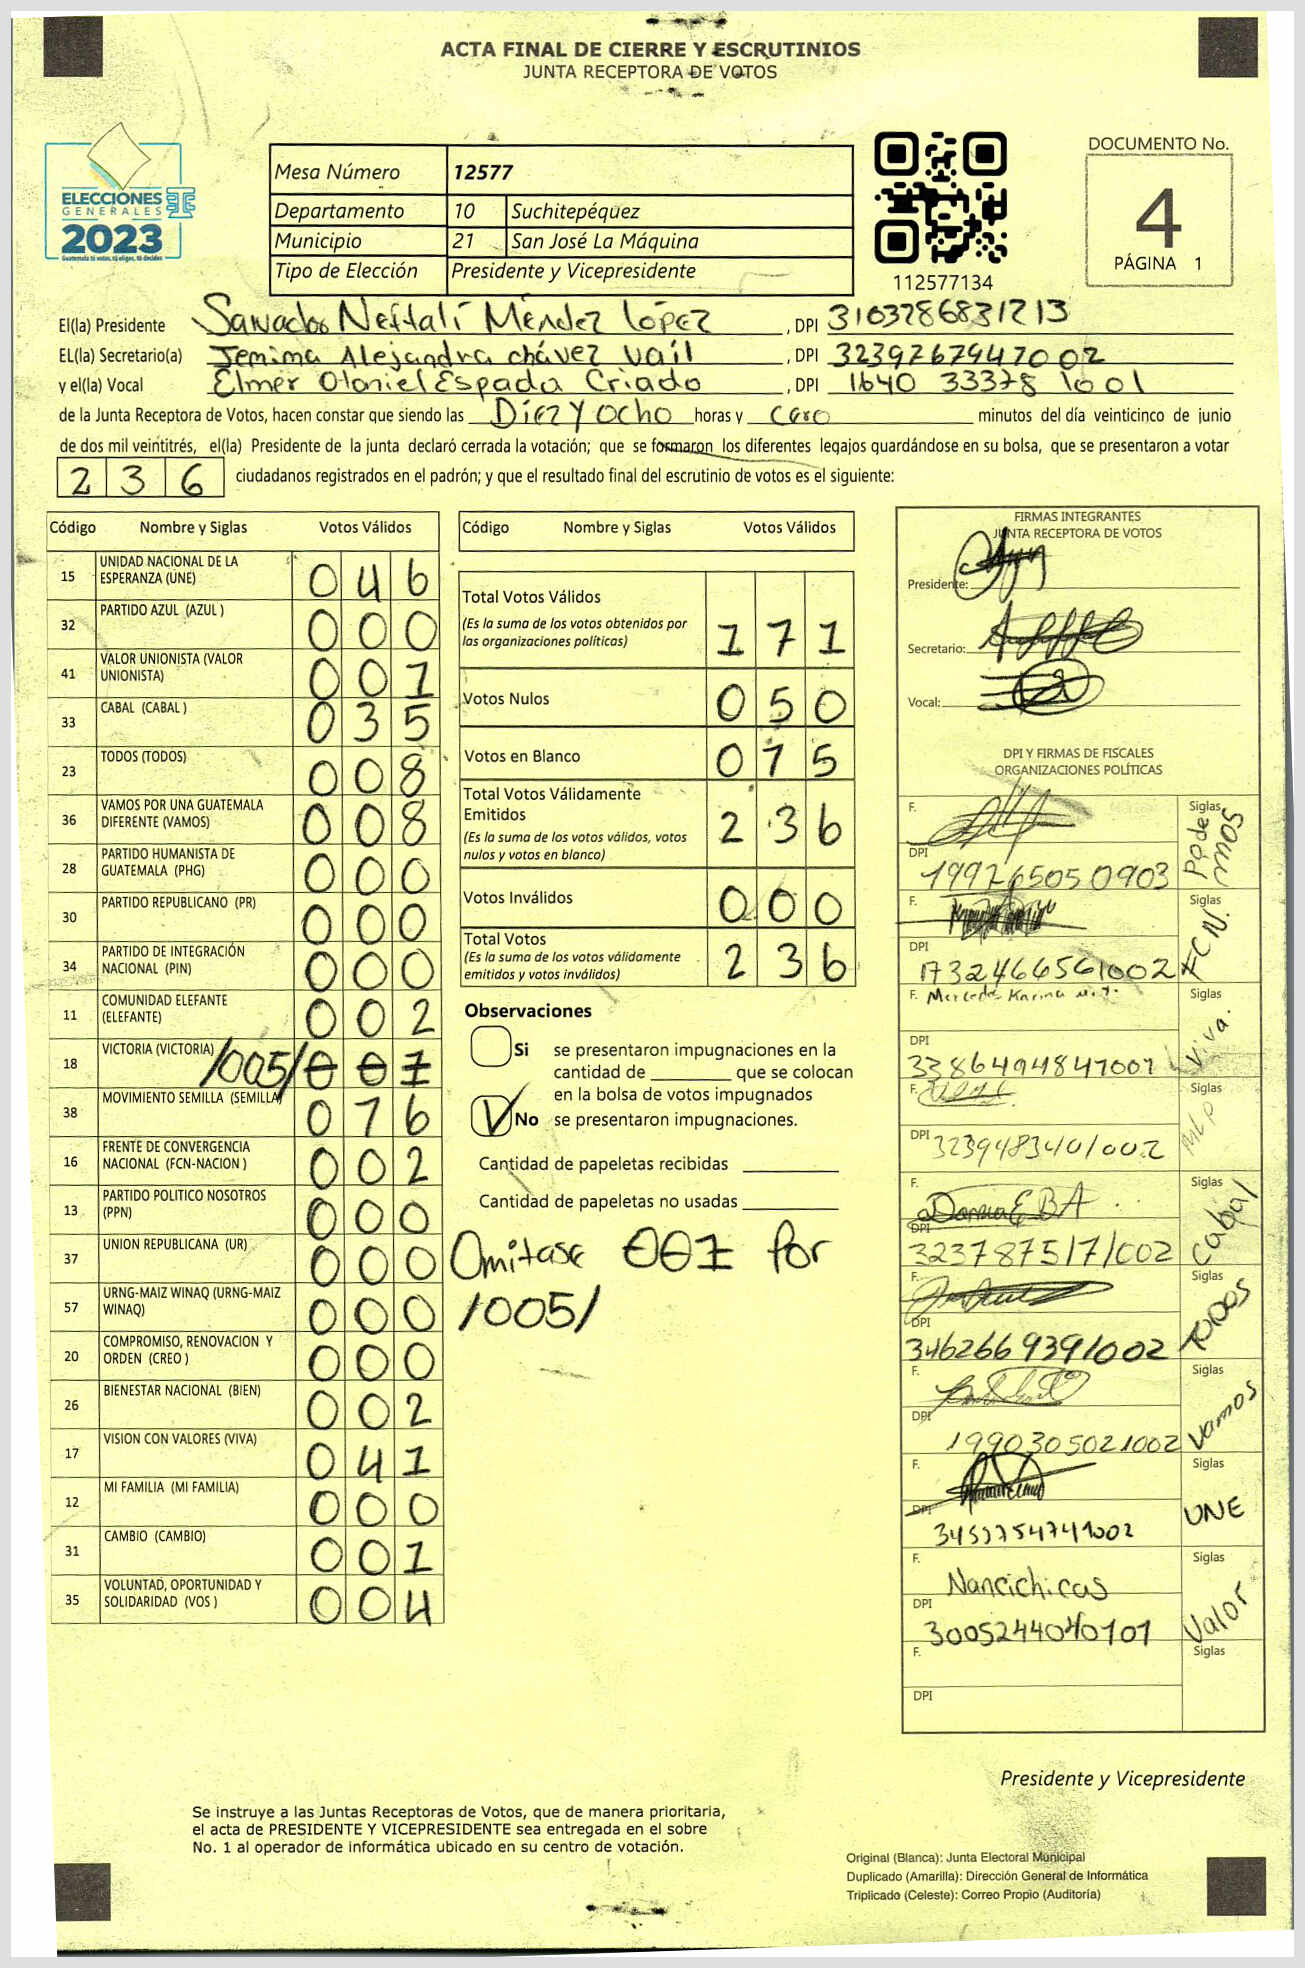 ACTA FINAL DE CIERRE Y ESCRUTINIOS
JUNTA RECEPTORA DE VOTOS
ELECCIONES
GENERALES
2023
Guatemala tú votas, tú eliges, tú decides
Mesa Número 12577
Departamento 10 Suchitepéquez
Municipio 21 San José La Máquina
Tipo de Elección Presidente y Vicepresidente
112577134
DOCUMENTO No.
4
PÁGINA 1
El(la) Presidente Salvador Neftalí Méndez López , DPI 3103286831213
EL(la) Secretario(a) Jemima Alejandra chávez vail , DPI 3239267947002
y el(la) Vocal Elmer Otoniel Espada Criado , DPI 1640 33378 1001
de la Junta Receptora de Votos, hacen constar que siendo las Diez y ocho horas y cero minutos del día veinticinco de junio
de dos mil veintitrés, el(la) Presidente de la junta declaró cerrada la votación; que se formaron los diferentes legajos guardándose en su bolsa, que se presentaron a votar
236 ciudadanos registrados en el padrón; y que el resultado final del escrutinio de votos es el siguiente:
Código Nombre y Siglas Votos Válidos
15 UNIDAD NACIONAL DE LA ESPERANZA (UNE) 046
32 PARTIDO AZUL (AZUL ) 000
41 VALOR UNIONISTA (VALOR UNIONISTA) 001
33 CABAL (CABAL ) 035
23 TODOS (TODOS) 008
36 VAMOS POR UNA GUATEMALA DIFERENTE (VAMOS) 008
28 PARTIDO HUMANISTA DE GUATEMALA (PHG) 000
30 PARTIDO REPUBLICANO (PR) 000
34 PARTIDO DE INTEGRACIÓN NACIONAL (PIN) 000
11 COMUNIDAD ELEFANTE (ELEFANTE) 002
18 VICTORIA (VICTORIA) /005/ 001
38 MOVIMIENTO SEMILLA (SEMILLA) 016
16 FRENTE DE CONVERGENCIA NACIONAL (FCN-NACION ) 002
13 PARTIDO POLITICO NOSOTROS (PPN) 000
37 UNION REPUBLICANA (UR) 000
57 URNG-MAIZ WINAQ (URNG-MAIZ WINAQ) 000
20 COMPROMISO, RENOVACION Y ORDEN (CREO ) 000
26 BIENESTAR NACIONAL (BIEN) 002
17 VISION CON VALORES (VIVA) 041
12 MI FAMILIA (MI FAMILIA) 000
31 CAMBIO (CAMBIO) 001
35 VOLUNTAD, OPORTUNIDAD Y SOLIDARIDAD (VOS ) 004
Código Nombre y Siglas Votos Válidos
Total Votos Válidos 171
(Es la suma de los votos obtenidos por
las organizaciones políticas)
Votos Nulos 050
Votos en Blanco 015
Total Votos Válidamente
Emitidos 236
(Es la suma de los votos válidos, votos
nulos y votos en blanco)
Votos Inválidos 000
Total Votos 236
(Es la suma de los votos válidamente
emitidos y votos inválidos)
Observaciones
Si se presentaron impugnaciones en la
cantidad de ________ que se colocan
en la bolsa de votos impugnados
No se presentaron impugnaciones.
Cantidad de papeletas recibidas
Cantidad de papeletas no usadas
Omitase 001 por
/005/
FIRMAS INTEGRANTES
JUNTA RECEPTORA DE VOTOS
Presidente:
Secretario:
Vocal:
DPI Y FIRMAS DE FISCALES
ORGANIZACIONES POLÍTICAS
F. Siglas Podemos
DPI 1992650500903
F. Siglas FCN.
DPI 1732466561002
F. Mercedes Karina Siglas Viva.
DPI 3386494847001
F. Siglas MLP
DPI 3239483401002
F. Siglas Cabal
DPI 3237875171002
F. Siglas TODOS
DPI 3462669391002
F. Siglas Vamos
DPI 1990305021002
F. Siglas UNE
DPI
F. Nancichicas Siglas Valor
DPI 3005244040101
F. Siglas
DPI
Presidente y Vicepresidente
Se instruye a las Juntas Receptoras de Votos, que de manera prioritaria,
el acta de PRESIDENTE Y VICEPRESIDENTE sea entregada en el sobre
No. 1 al operador de informática ubicado en su centro de votación.
Original (Blanca): Junta Electoral Municipal
Duplicado (Amarilla): Dirección General de Informática
Triplicado (Celeste): Correo Propio (Auditoría)